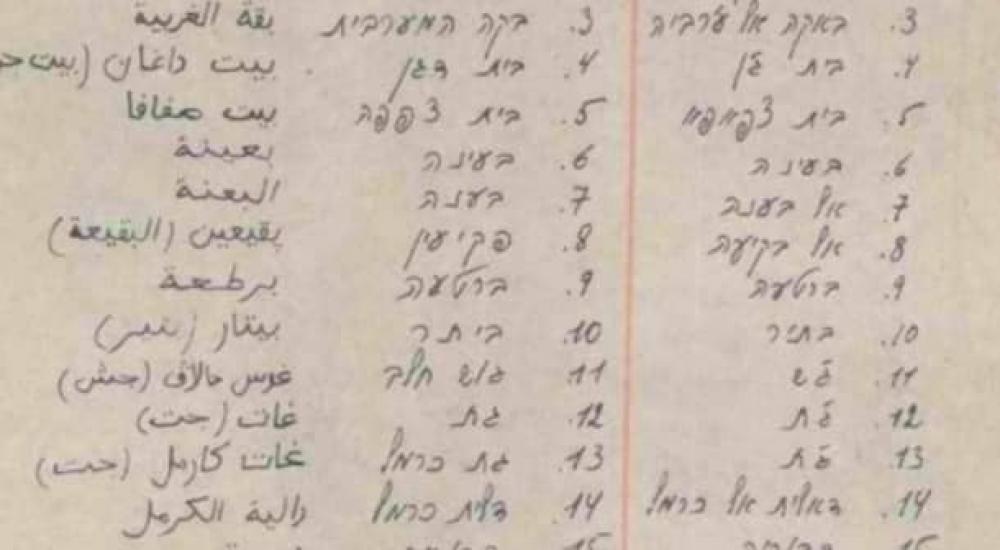 3. באקה אל ע'רביה 3. בקה המערבית بقة الغربية
4. בית ג'ן 4. בית דגן بيت داغان (بيت
5. בית צפאפא 5. בית צפפה بيت صفافا
6. בעינה 6. בעינה بعينة
7. אל בענה 7. בענה البعنة
8. אל בקיעה 8. פקיעין بقيعين (البقيعة)
9. ברטעה 9. ברטעה برطعة
10. בתיר 10. ביתר بيتار (بتير)
11. ג'ש 11. גוש חלב غوس حالاف (جش)
12. ג'ת 12. גת غات (جت)
13. ג'ת 13. גת כרמל غات كارمل (جت)
14. דאלית אל כרמל 14. דלית כרמל دالية الكرمل